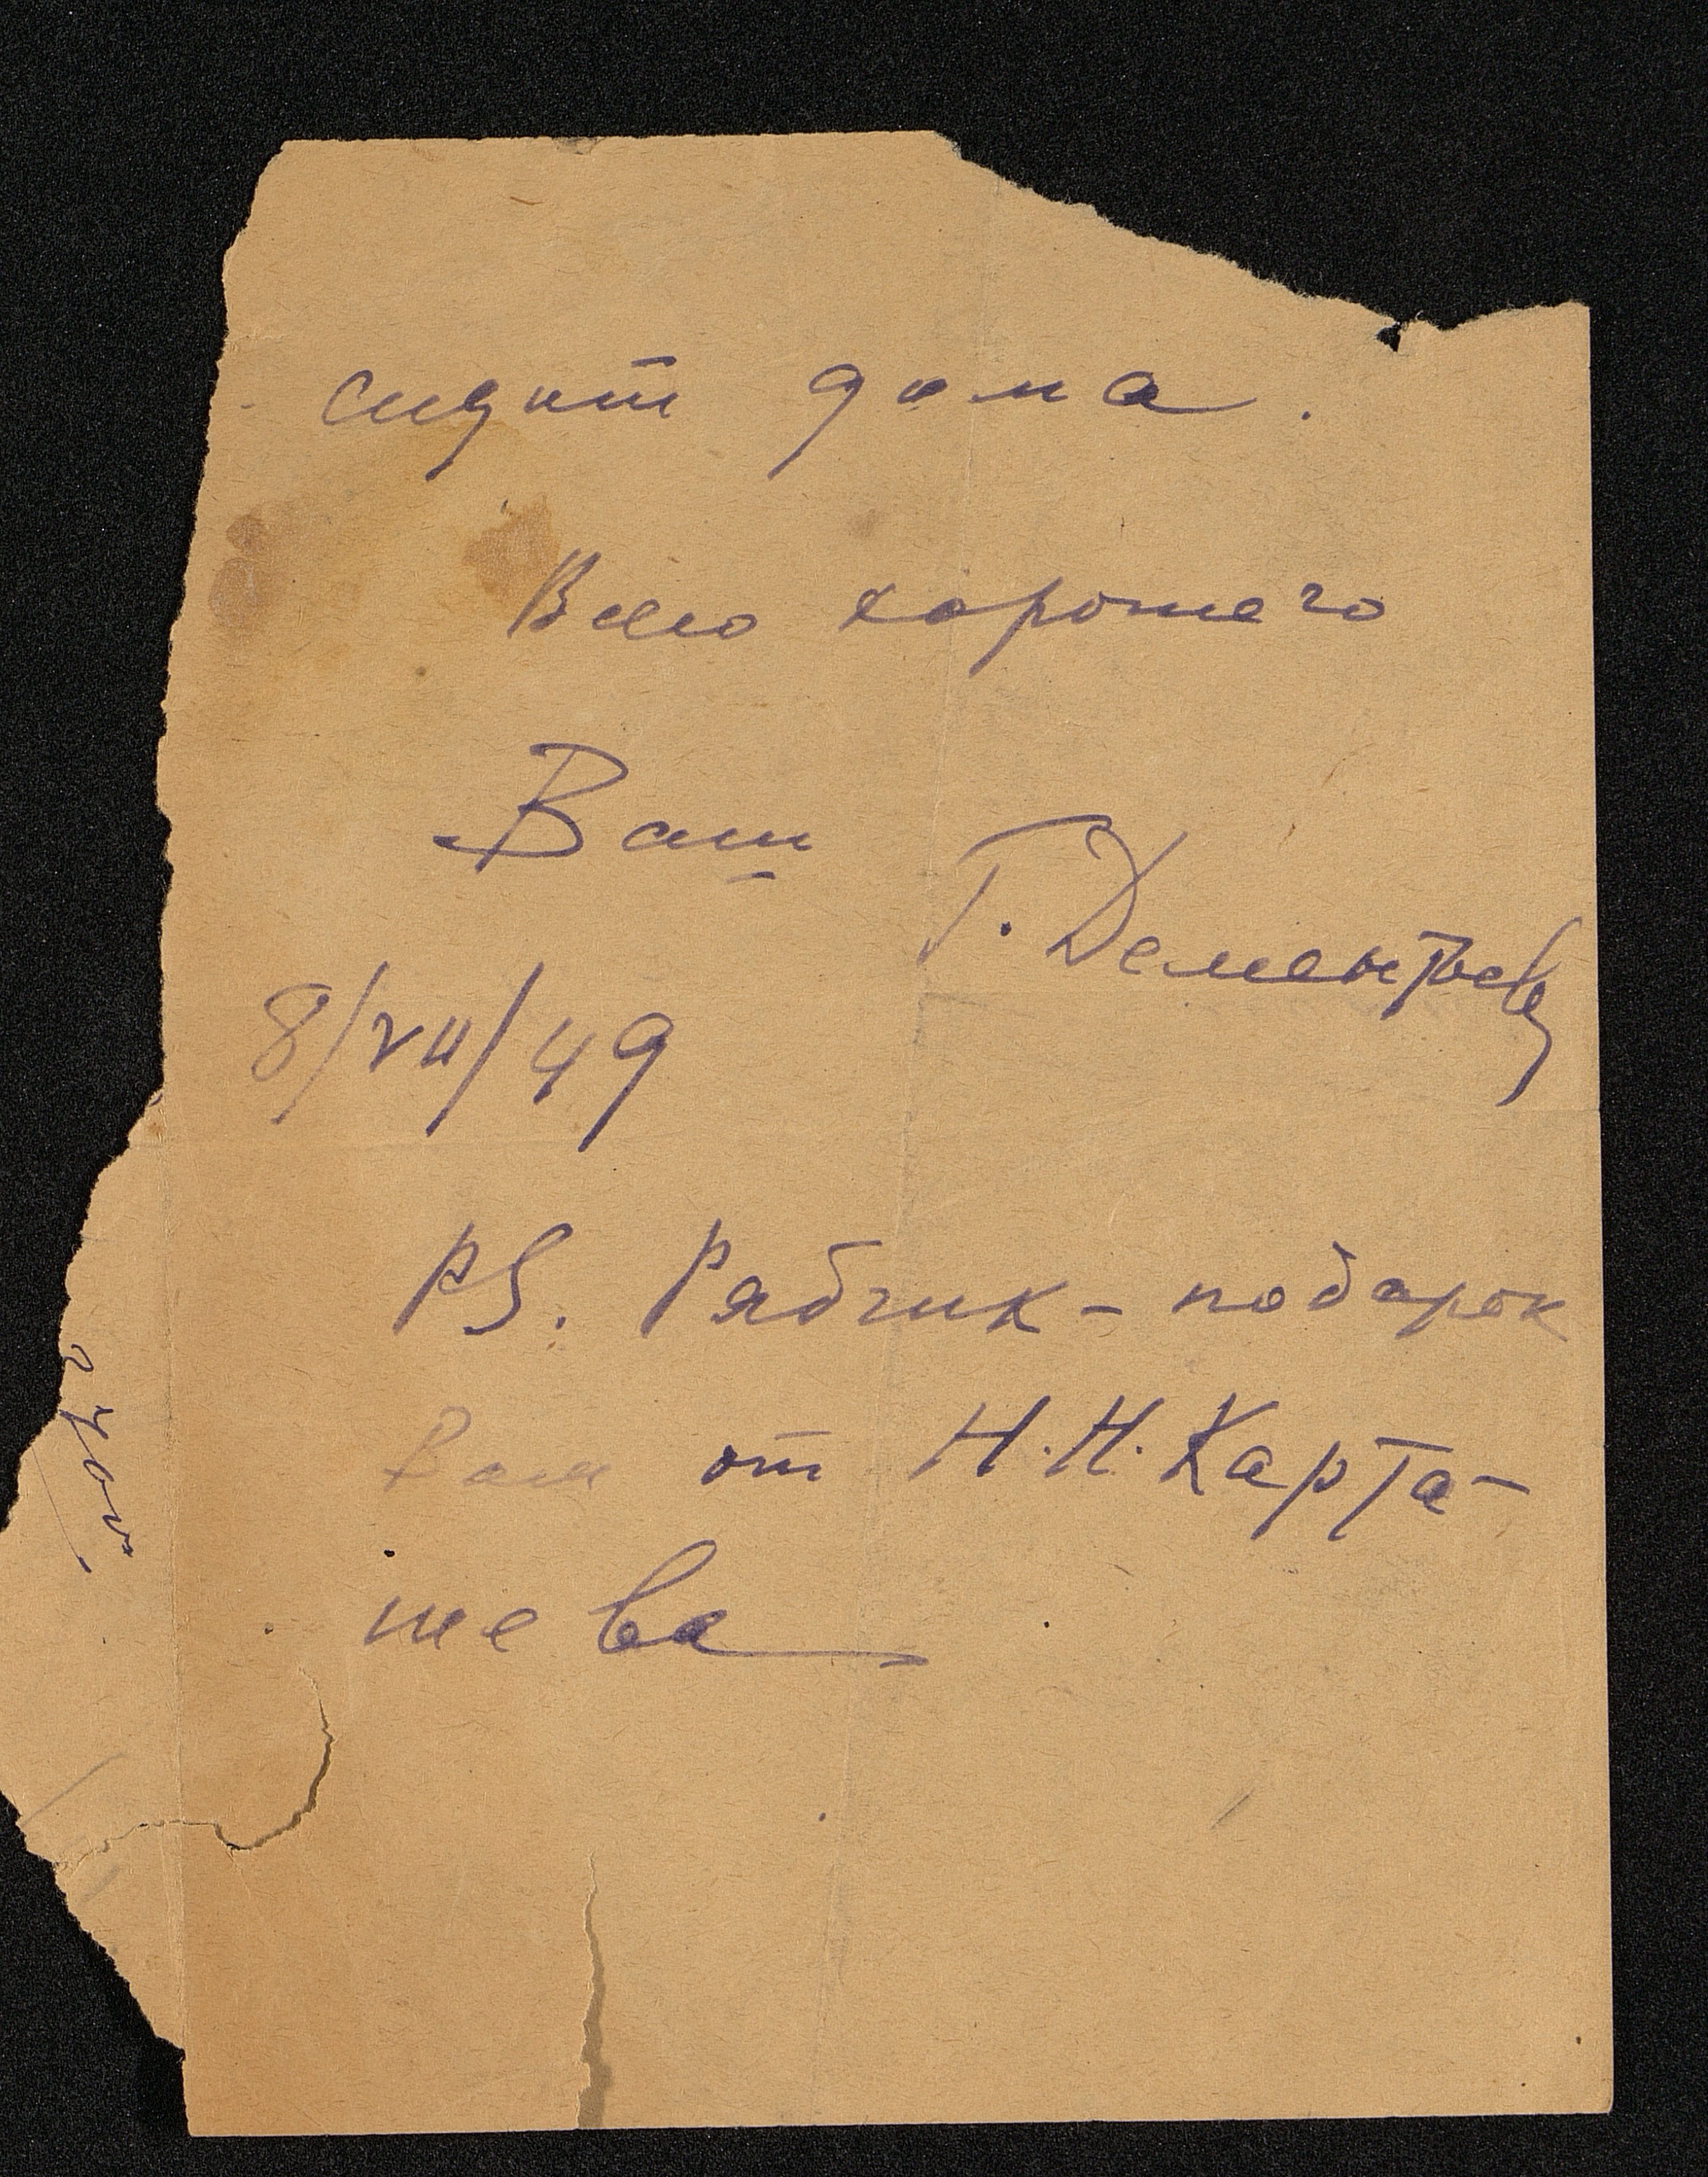 сидит дома.
Всего хорошего
Ваш
Г. Дементьев
8/VII/49
PS. Рябчик - подарок
Вам от Н.Н. Карта-
шева